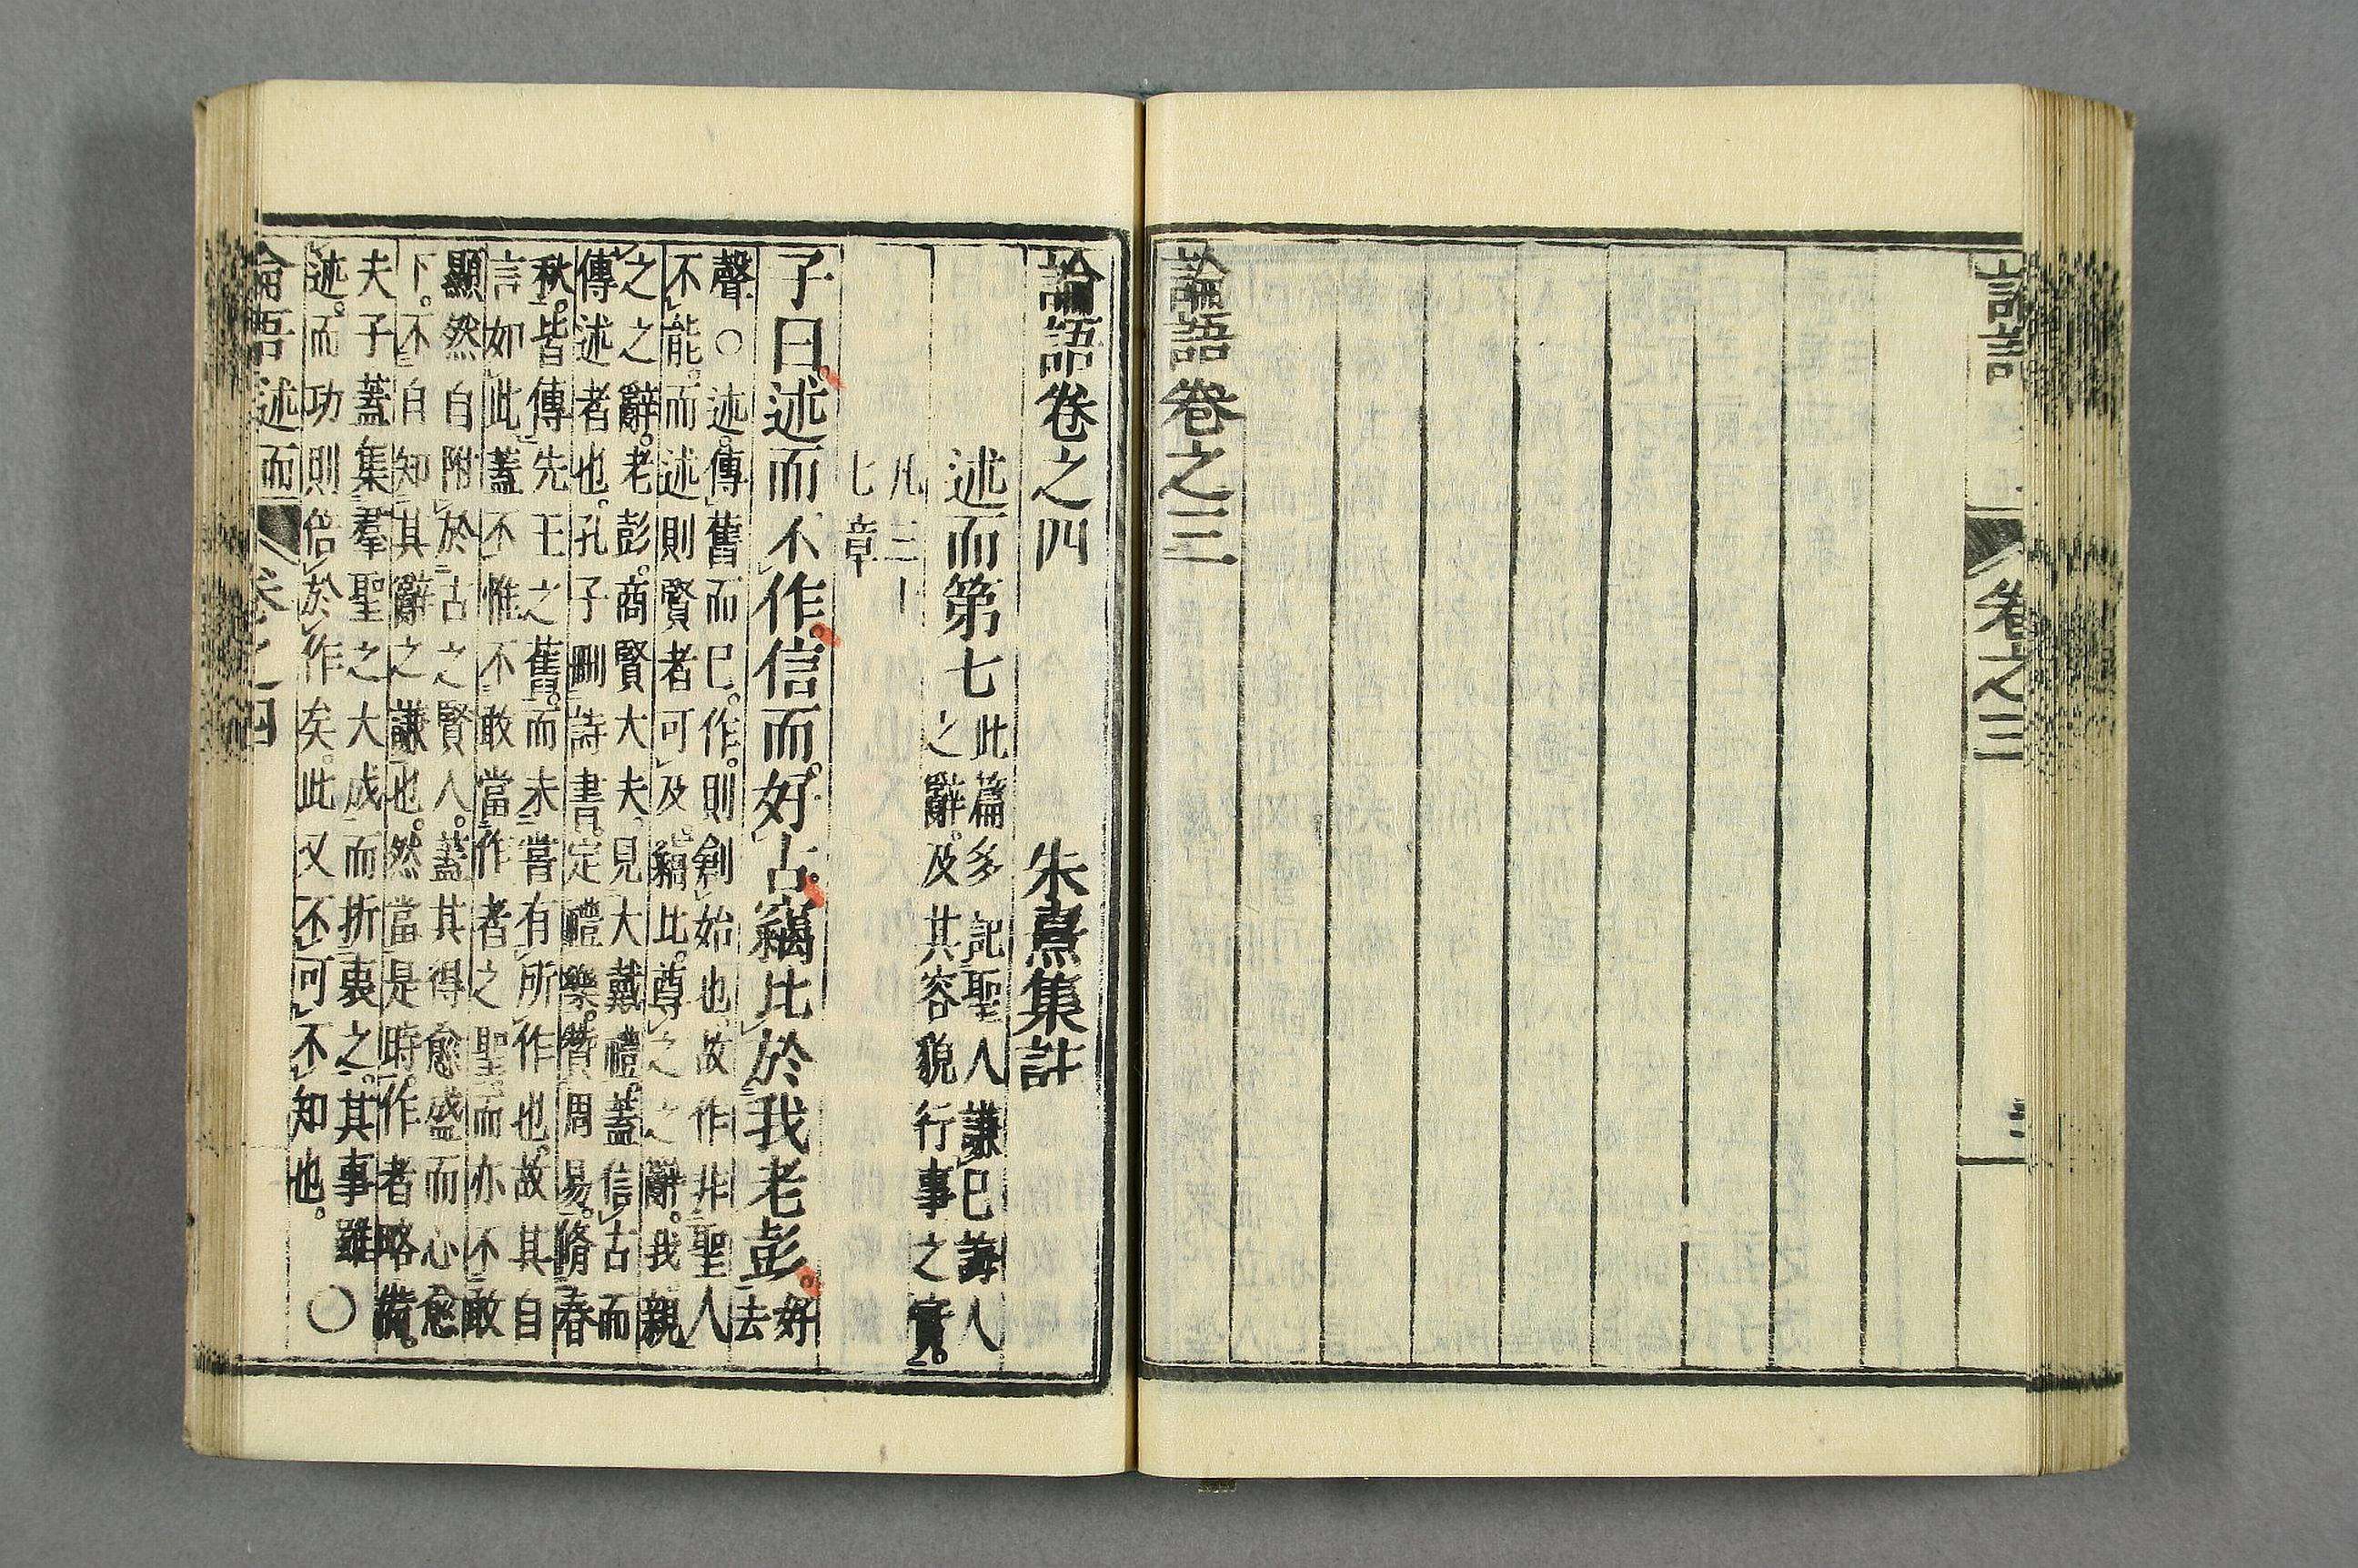 論語 卷之三 三
論語卷之三
論語卷之四 朱熹集註
述而第七 此篇多記聖人謙已誨人
之辭。及其容貌行事之實。
凡三十
七章
子曰。述而不作。信而好古。竊比於我老彭。好
去
聲。○述。傳舊而已。作。則創始也。故作非聖人
不能。而述則賢者可及。竊比。尊之之辭。我。親
之之辭。老彭。商賢大夫。見大戴禮。蓋信古而
傳述者也。孔子刪詩書。定禮樂。贊周易。脩春
秋。皆傳先王之舊。而未嘗有所作也。故其自
言如此。蓋不惟不敢當作者之聖。而亦不敢
顯然自附於古之賢人。蓋其得愈盛而心愈
下。不自知其辭之謙也。然當是時。作者略備。
夫子蓋集羣聖之大成而折衷之。其事雖
述。而功則倍於作矣。此又不可不知也。○
論語述而 卷之四